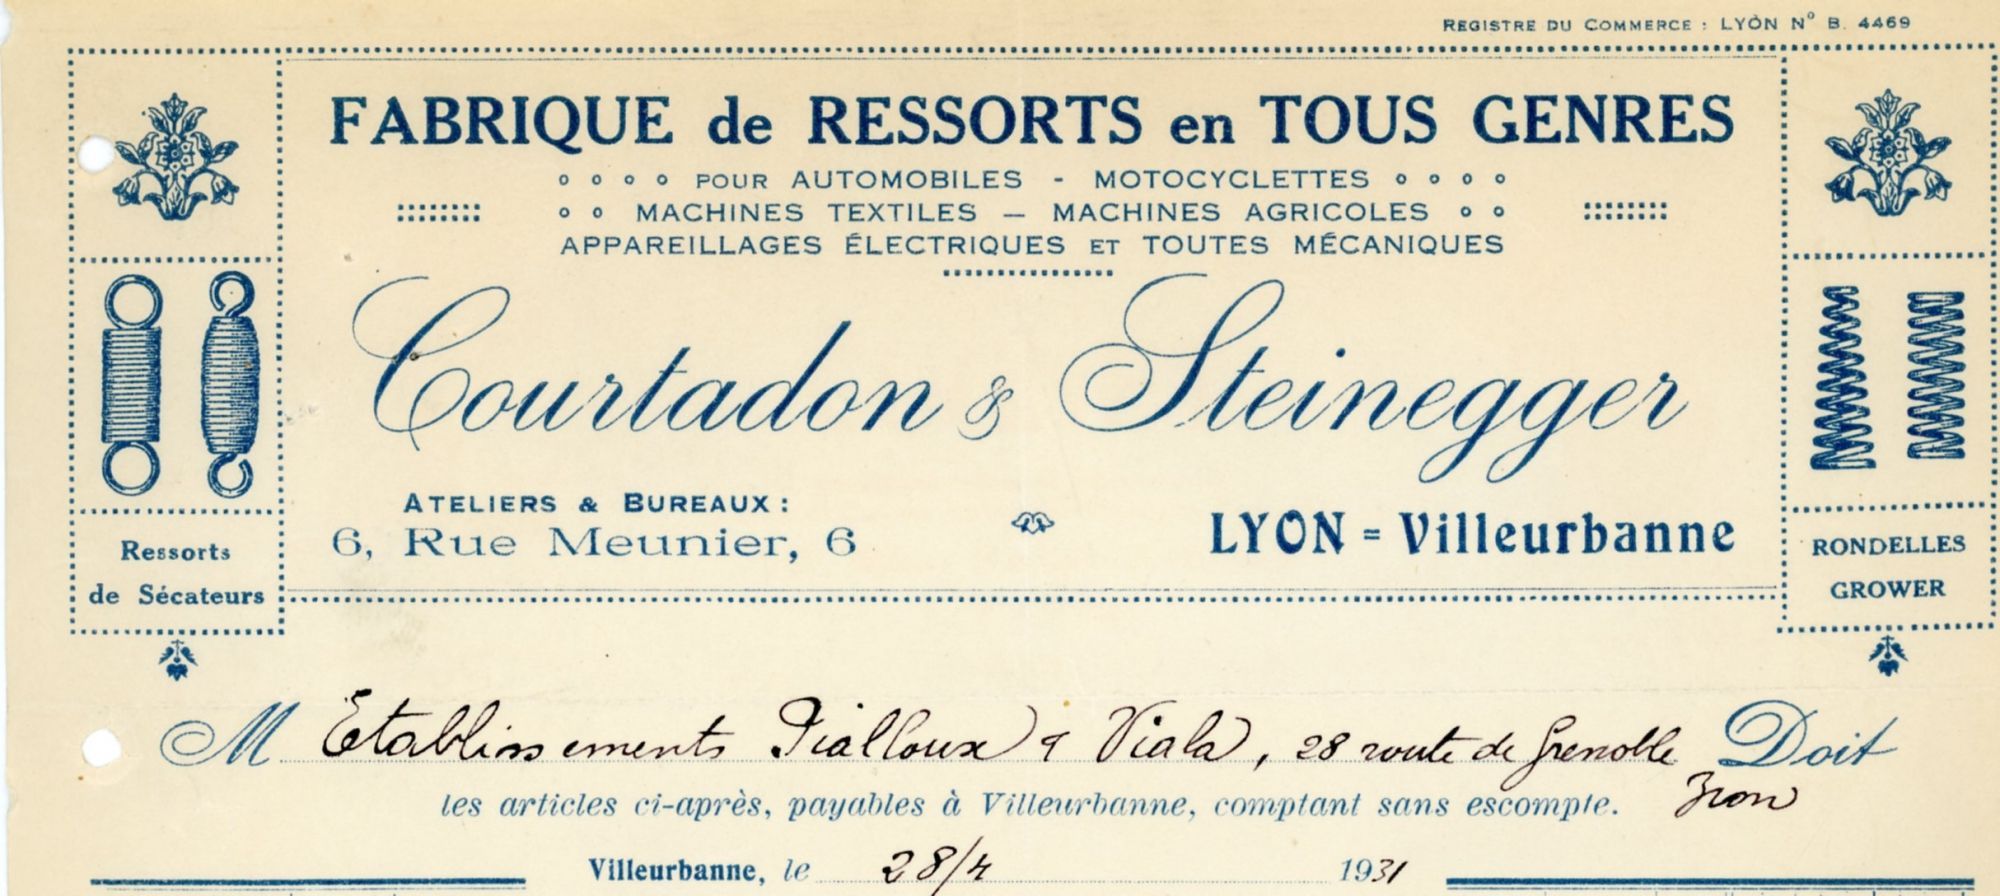 REGISTRE DU COMMERCE : LYON N° B. 4469
FABRIQUE de RESSORTS en TOUS GENRES
POUR AUTOMOBILES - MOTOCYCLETTES
MACHINES TEXTILES — MACHINES AGRICOLES
APPAREILLAGES ÉLECTRIQUES ET TOUTES MÉCANIQUES
Courtadon & Steinegger
ATELIERS & BUREAUX :
6, Rue Meunier, 6
LYON = Villeurbanne
Ressorts
de Sécateurs
RONDELLES
GROWER
M Etablissements Pialloux & Viala, 28 route de Grenoble Doit
Bron
les articles ci-après, payables à Villeurbanne, comptant sans escompte.
Villeurbanne, le 28/4 1931